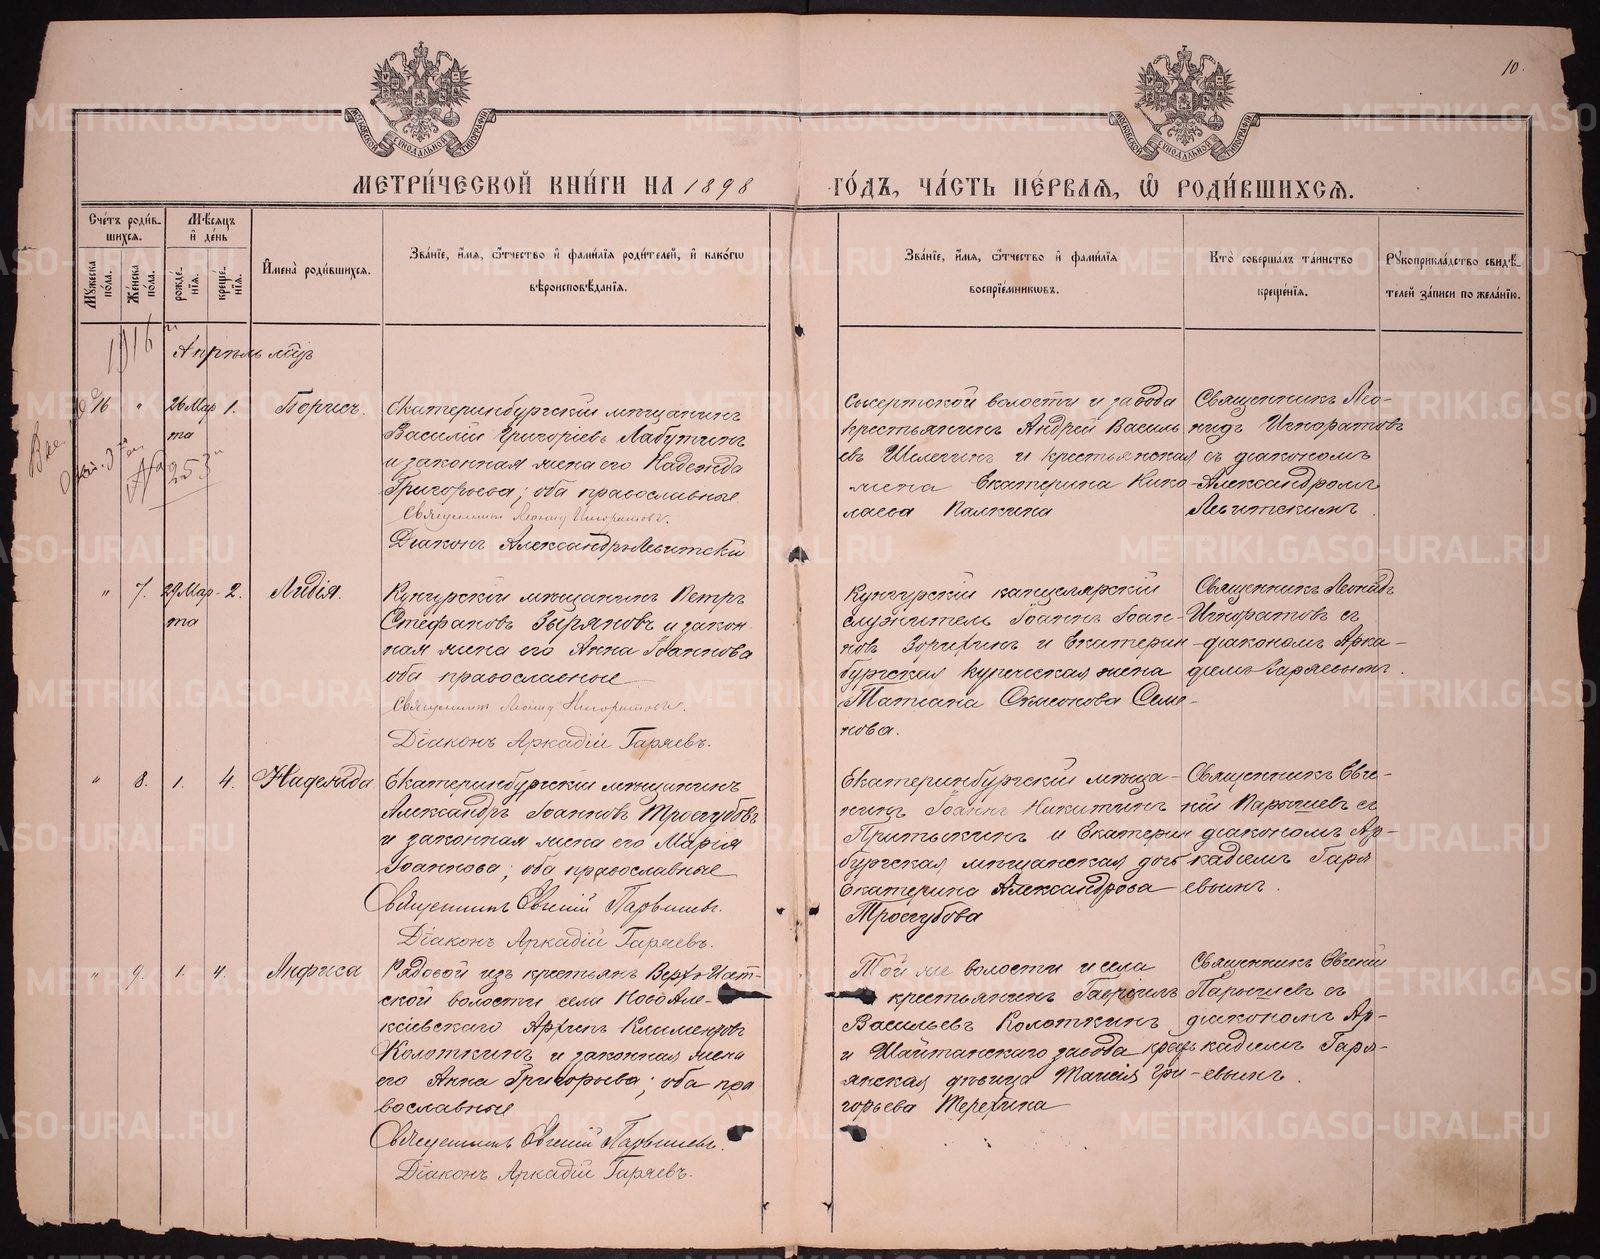 10.
МОСКОВСКОЙ СУНОДАЛЬНОЙ ТИПОГРАФІИ
МОСКОВСКОЙ СУНОДАЛЬНОЙ ТИПОГРАФІИ
МЕТРИ́ЧЕСКОЙ КНИ́ГИ НА 1898 ГО́ДЪ, ЧА́СТЬ ПЕ́РВАЯ, Ѽ РОДИ́ВШИХСЯ.
Сче́тъ роди́в-
шихся.
Мꙋ́жеска
по́ла.
Же́нска
по́ла.
Мѣ́сяцъ
и҆ де́нь
рожде́-
нїя.
креще́-
нїя.
И҆мена̀ роди́вшихся.
Зва́нїе, и҆́мя, ѻ҆́тчество и҆ фами́лїя роди́телей, и҆ како́гѡ
вѣроисповѣ́данїя.
Зва́нїе, и҆́мя, ѻ҆́тчество и҆ фами́лїя
воспрїе́мникѡвъ.
Кто̀ соверша́лъ та́инство
креще́нїя.
Рꙋкоприкла́дство свидѣ́-
телей за́писи по жела́нїю.
1916
Апрѣль мцъ
№ 253
6
"
26 Мар
та
1.
Борисъ.
Екатеринбургскій мѣщанинъ
Василій Григоріевъ Лабутинъ
и законная жена его Надежда
Григорьева; оба православные
Священникъ Леонид Игноратовъ.
Діаконъ Александръ Левитскій
Сысертской волости и завода
крестьянинъ Андрей Василь
евъ Шелегинъ и крестьянская
жена Екатерина Нико-
лаева Палкина
Священникъ Лео-
нидъ Игноратовъ
съ діакономъ
Александромъ
Левитскимъ.
"
7.
29 Мар-
та
2.
Лидія.
Кунгурскій мѣщанинъ Петръ
Стефановъ Зыряновъ и закон-
ная жена его Анна Іоаннова
оба православные
Священникъ Леонид Игноратовъ.
Діаконъ Аркадій Гаряевъ.
Кунгурскій канцелярскій
служитель Іоаннъ Іоан-
новъ Зорихинъ и Екатерин-
бургская купеческая жена
Татіана Симеонова Семе-
нова.
Священникъ Леонидъ
Игноратовъ съ
діакономъ Арка-
діемъ Гаряевымъ.
"
8.
1.
4.
Надежда
Екатеринбургскій мѣщанинъ
Александръ Іоанновъ Трясгубовъ
и законная жена его Марія
Іоаннова; оба православные
Священникъ Евгеній Парышевъ.
Діаконъ Аркадій Гаряевъ.
Екатеринбургскій мѣща-
нинъ Іоаннъ Никитинъ
Притыкинъ и Екатерин
бургская мѣщанская дочь
Екатерина Александрова
Трясгубова
Священникъ Евге-
ній Парышевъ съ
діакономъ Ар-
кадіемъ Гаря
евымъ.
"
9.
1.
4.
Анфиса
Рядовой изъ крестьянъ Верх-Исет-
ской волости села Ново Але-
ксіевскаго Архипъ Климентовъ
Колоткинъ и законная жена
его Анна Григорьева; оба пра
вославные
Священникъ Евгеній Парышевъ.
Діаконъ Аркадій Гаряевъ.
Той же волости и села
крестьянинъ Гавріилъ
Васильевъ Колоткинъ
и Шайтанскаго завода кресть
янская дѣвица Таисія Гри-
горьева Терехина
Священникъ Евгеній
Парышевъ съ
діакономъ Ар-
кадіемъ Гаря-
евымъ.
METRIKI.GASO-URAL.RU